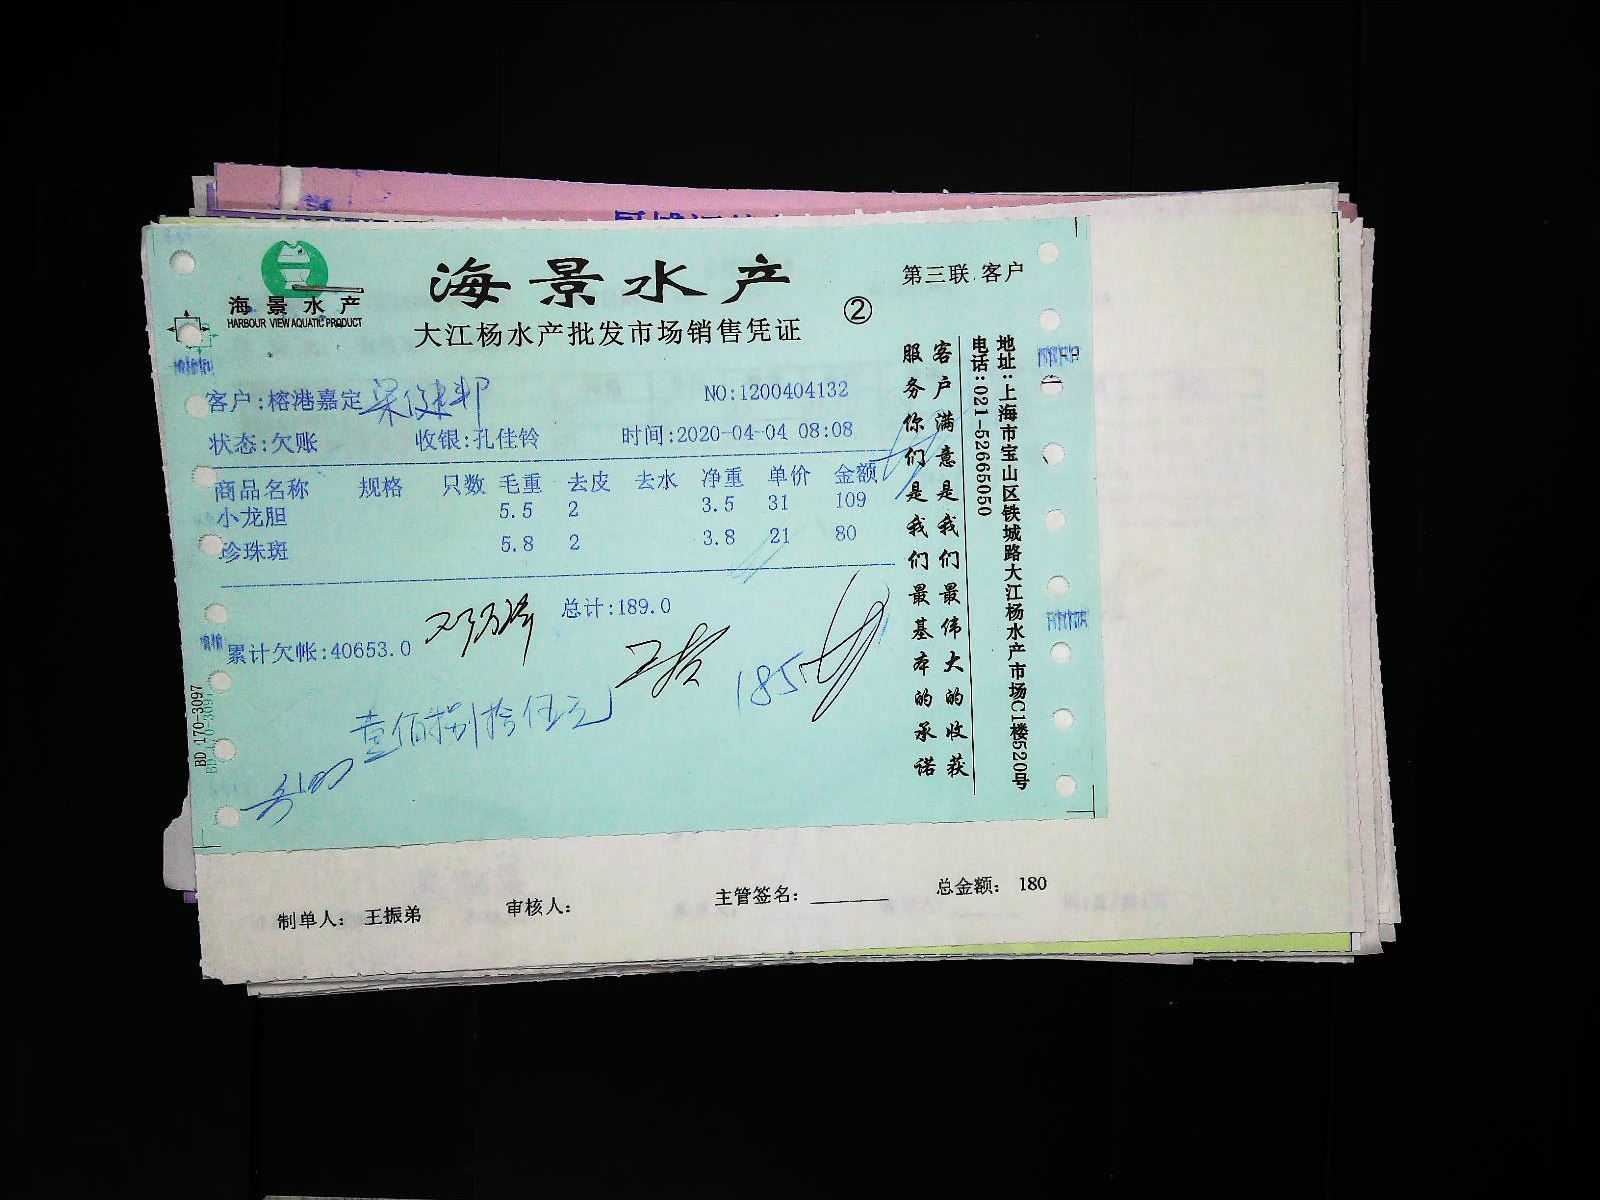 海景水产
HARBOUR VIEW AQUATIC PRODUCT
海景水产
大江杨水产批发市场销售凭证
②
第三联.客户
客户:榕港嘉定
NO:1200404132
状态:欠账 收银:孔佳铃 时间:2020-04-04 08:08
商品名称 规格 只数 毛重 去皮 去水 净重 单价 金额
小龙胆 5.5 2 3.5 31 109
珍珠斑 5.8 2 3.8 21 80
总计:189.0
累计欠帐:40653.0
185
壹佰捌拾伍元
客户满意是我们最伟大的收获
服务你们是我们最基本的承诺
地址:上海市宝山区铁城路大江杨水产市场C1楼520号
电话:021-52665050
BD 170-3097
制单人: 王振弟 审核人: 主管签名:______ 总金额: 180